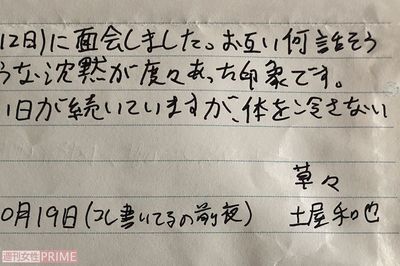 12日)に面会しました。お互い何話そう
うな沈黙が度々あった印象です。
日が続いていますが、体を冷さない
草々
0月19日(コレ書いてるの前夜)
土屋和也
週刊女性PRIME